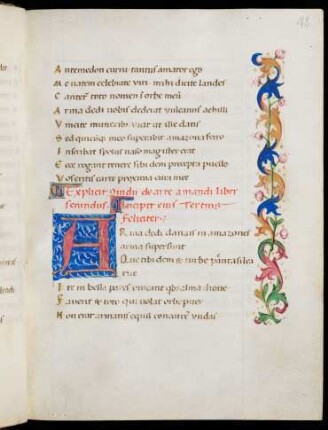 Antemedon curru tantus amator ego
Me vatem celebrate viri mihi dicite laudes
Cantet toto nomen i orbe meū
Arma dedi vobis dederat vulcanus achilli
Vincite muneribus vicit ut ille datis
Sed quicūq; meo superabit amazona ferro
Inscribat spoliis naso magister erat
Ecce rogant tenere sibi dem precepta puelle
Vos eritis carte proxima cura mee
Explicit Ovidii de arte amandi liber
secundus Incipit eius Tertius
Feliciter
Arma dedi danais in amazones
arma supersunt
Que tibi dem &
Ite in bella pares vincant
Faverit & toto qui volat orbe puer
Non erat armatis equū concurrere nudas